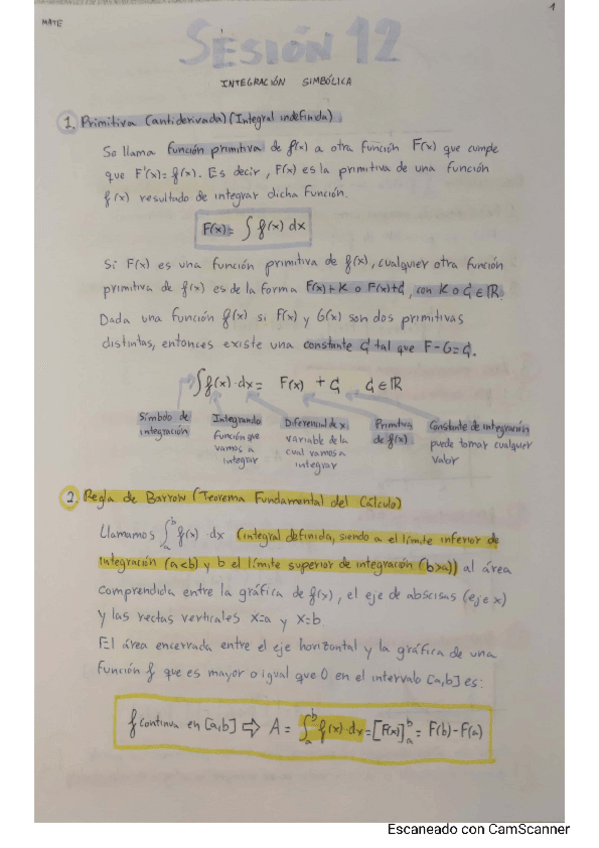 1
MATE
SESIÓN 12
INTEGRACIÓN SIMBÓLICA
1. Primitiva (antiderivada) (Integral indefinida)
Se llama función primitiva de f(x) a otra función F(x) que cumple
que F'(x)= f(x). Es decir, F(x) es la primitiva de una función
f(x) resultado de integrar dicha función.
F(x)= ∫ f(x) dx
Si F(x) es una función primitiva de f(x), cualquier otra función
primitiva de f(x) es de la forma F(x)+K o F(x)+C, con K o C ∈ ℝ.
Dada una función f(x) si F(x) y G(x) son dos primitivas
distintas, entonces existe una constante C tal que F-G=C.
∫f(x)·dx= F(x) + C C∈ℝ
Símbolo de integración
Integrando Función que vamos a integrar
Diferencial de x variable de la cual vamos a integrar
Primitiva de f(x)
Constante de integración puede tomar cualquier valor
2. Regla de Barrow (Teorema Fundamental del Cálculo)
Llamamos ∫ₐᵇ f(x) · dx (integral definida, siendo a el límite inferior de
integración (a<b) y b el límite superior de integración (b>a)) al área
comprendida entre la gráfica de f(x), el eje de abscisas (eje x)
y las rectas verticales x=a y x=b.
El área encerrada entre el eje horizontal y la gráfica de una
función f que es mayor o igual que 0 en el intervalo [a,b] es:
f continua en [a,b] ⇨ A = ∫ₐᵇ f(x)·dx = [F(x)]ₐᵇ = F(b)-F(a)
Escaneado con CamScanner